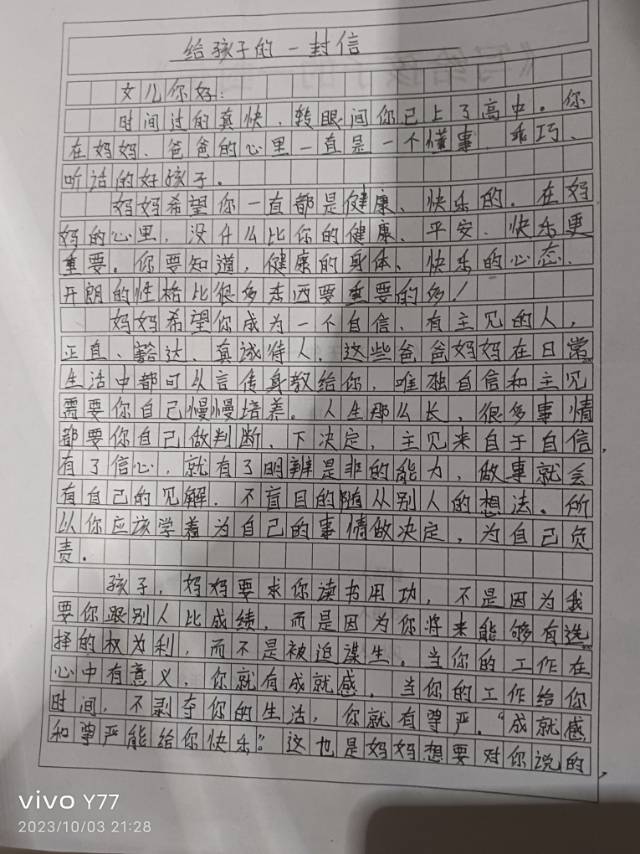 给孩子的一封信
女儿你好：
时间过的真快，转眼间你已上了高中。你
在妈妈、爸爸的心里一直是一个懂事、乖巧、
听话的好孩子。
妈妈希望你一直都是健康、快乐的。在妈
妈的心里，没什么比你的健康、平安、快乐更
重要。你要知道，健康的身体、快乐的心态、
开朗的性格比很多东西要重要的多！
妈妈希望你成为一个自信、有主见的人，
正直、豁达、真诚待人，这些爸爸妈妈在日常
生活中都可以言传身教给你，唯独自信和主见
需要你自己慢慢培养。人生那么长，很多事情
都要你自己做判断、下决定，主见来自于自信，
有了信心，就有了明辨是非的能力，做事就会
有自己的见解，不盲目的随从别人的想法。所
以你应该学着为自己的事情做决定，为自己负
责。
孩子，妈妈要求你读书用功，不是因为我
要你跟别人比成绩，而是因为你将来能够有选
择的权为利，而不是被迫谋生。当你的工作在
心中有意义，你就有成就感，当你的工作给你
时间，不剥夺你的生活，你就有尊严。“成就感
和尊严能给你快乐”。这也是妈妈想要对你说的，
vivo Y77
2023/10/03 21:28